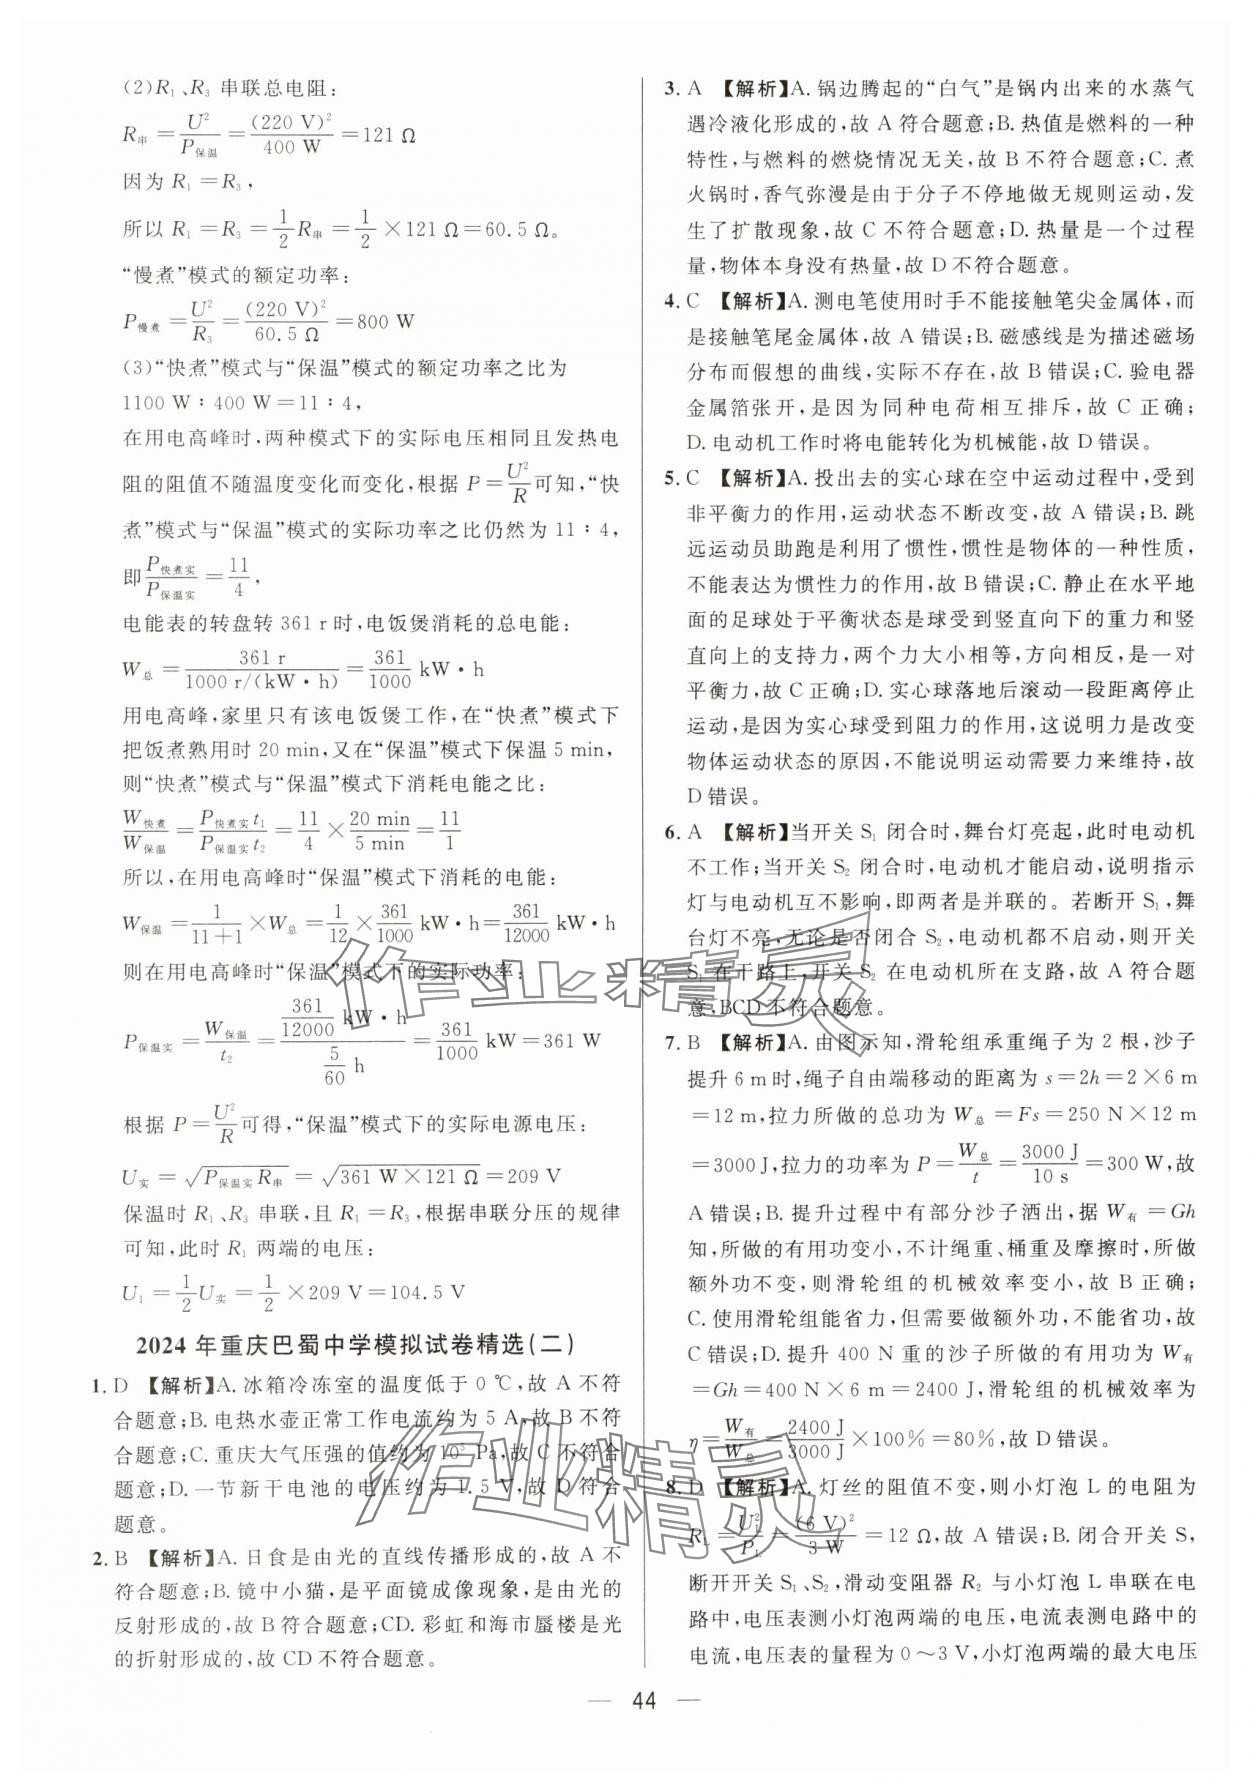 (2)R₁、R₃ 串联总电阻:
R串 = U²/P保温 = (220 V)²/400 W = 121 Ω
因为 R₁ = R₃,
所以 R₁ = R₃ = 1/2 R串 = 1/2 × 121 Ω = 60.5 Ω。
“慢煮”模式的额定功率:
P慢煮 = U²/R₃ = (220 V)²/60.5 Ω = 800 W
(3)“快煮”模式与“保温”模式的额定功率之比为
1100 W∶400 W=11∶4,
在用电高峰时,两种模式下的实际电压相同且发热电
阻的阻值不随温度变化而变化,根据 P = U²/R 可知,“快
煮”模式与“保温”模式的实际功率之比仍然为 11∶4,
即 P快煮实/P保温实 = 11/4,
电能表的转盘转 361 r 时,电饭煲消耗的总电能:
W总 = 361 r/1000 r/(kW·h) = 361/1000 kW·h
用电高峰,家里只有该电饭煲工作,在“快煮”模式下
把饭煮熟用时 20 min,又在“保温”模式下保温 5 min,
则“快煮”模式与“保温”模式下消耗电能之比:
W快煮/W保温 = P快煮实 t₁/P保温实 t₂ = 11/4 × 20 min/5 min = 11/1
所以,在用电高峰时“保温”模式下消耗的电能:
W保温 = 1/(11+1) × W总 = 1/12 × 361/1000 kW·h = 361/12000 kW·h
则在用电高峰时“保温”模式下的实际功率:
P保温实 = W保温/t₂ = (361/12000 kW·h)/(5/60 h) = 361/1000 kW = 361 W
根据 P = U²/R 可得,“保温”模式下的实际电源电压:
U实 = √(P保温实 R串) = √(361 W×121 Ω) = 209 V
保温时 R₁、R₃ 串联,且 R₁ = R₃,根据串联分压的规律
可知,此时 R₁ 两端的电压:
U₁ = 1/2 U实 = 1/2 × 209 V = 104.5 V
2024 年重庆巴蜀中学模拟试卷精选(二)
1. D 【解析】A. 冰箱冷冻室的温度低于 0 ℃,故 A 不符
合题意;B. 电热水壶正常工作电流约为 5 A,故 B 不符
合题意;C. 重庆大气压强的值约为 10⁵ Pa,故 C 不符合
题意;D. 一节新干电池的电压约为 1.5 V,故 D 符合
题意。
2. B 【解析】A. 日食是由光的直线传播形成的,故 A 不
符合题意;B. 镜中小猫,是平面镜成像现象,是由光的
反射形成的,故 B 符合题意;CD. 彩虹和海市蜃楼是光
的折射形成的,故 CD 不符合题意。
3. A 【解析】A. 锅边腾起的“白气”是锅内出来的水蒸气
遇冷液化形成的,故 A 符合题意;B. 热值是燃料的一种
特性,与燃料的燃烧情况无关,故 B 不符合题意;C. 煮
火锅时,香气弥漫是由于分子不停地做无规则运动,发
生了扩散现象,故 C 不符合题意;D. 热量是一个过程
量,物体本身没有热量,故 D 不符合题意。
4. C 【解析】A. 测电笔使用时手不能接触笔尖金属体,而
是接触笔尾金属体,故 A 错误;B. 磁感线是为描述磁场
分布而假想的曲线,实际不存在,故 B 错误;C. 验电器
金属箔张开,是因为同种电荷相互排斥,故 C 正确;
D. 电动机工作时将电能转化为机械能,故 D 错误。
5. C 【解析】A. 投出去的实心球在空中运动过程中,受到
非平衡力的作用,运动状态不断改变,故 A 错误;B. 跳
远运动员助跑是利用了惯性,惯性是物体的一种性质,
不能表达为惯性力的作用,故 B 错误;C. 静止在水平地
面的足球处于平衡状态是球受到竖直向下的重力和竖
直向上的支持力,两个力大小相等,方向相反,是一对
平衡力,故 C 正确;D. 实心球落地后滚动一段距离停止
运动,是因为实心球受到阻力的作用,这说明力是改变
物体运动状态的原因,不能说明运动需要力来维持,故
D 错误。
6. A 【解析】当开关 S₁ 闭合时,舞台灯亮起,此时电动机
不工作;当开关 S₂ 闭合时,电动机才能启动,说明指示
灯与电动机互不影响,即两者是并联的。若断开 S₁,舞
台灯不亮,无论是否闭合 S₂,电动机都不启动,则开关
S₁ 在干路上,开关 S₂ 在电动机所在支路,故 A 符合题
意,BCD 不符合题意。
7. B 【解析】A. 由图示知,滑轮组承重绳子为 2 根,沙子
提升 6 m 时,绳子自由端移动的距离为 s=2h=2×6 m
=12 m,拉力所做的总功为 W总 = Fs = 250 N×12 m
=3000 J,拉力的功率为 P = W总/t = 3000 J/10 s = 300 W,故
A 错误;B. 提升过程中有部分沙子洒出,据 W有 = Gh
知,所做的有用功变小,不计绳重、桶重及摩擦时,所做
额外功不变,则滑轮组的机械效率变小,故 B 正确;
C. 使用滑轮组能省力,但需做额外功,不能省功,故
C 错误;D. 提升 400 N 重的沙子所做的有用功为 W有
=Gh=400 N×6 m=2400 J,滑轮组的机械效率为
η = W有/W总 = 2400 J/3000 J ×100%=80%,故 D 错误。
8. D 【解析】A. 灯丝的阻值不变,则小灯泡 L 的电阻为
R_L = U_L²/P_L = (6 V)²/3 W = 12 Ω,故 A 错误;B. 闭合开关 S,
断开开关 S₁、S₂,滑动变阻器 R₂ 与小灯泡 L 串联在电
路中,电压表测小灯泡两端的电压,电流表测电路中的
电流,电压表的量程为 0～3 V,小灯泡两端的最大电压
作业精灵
作业精灵
— 44 —